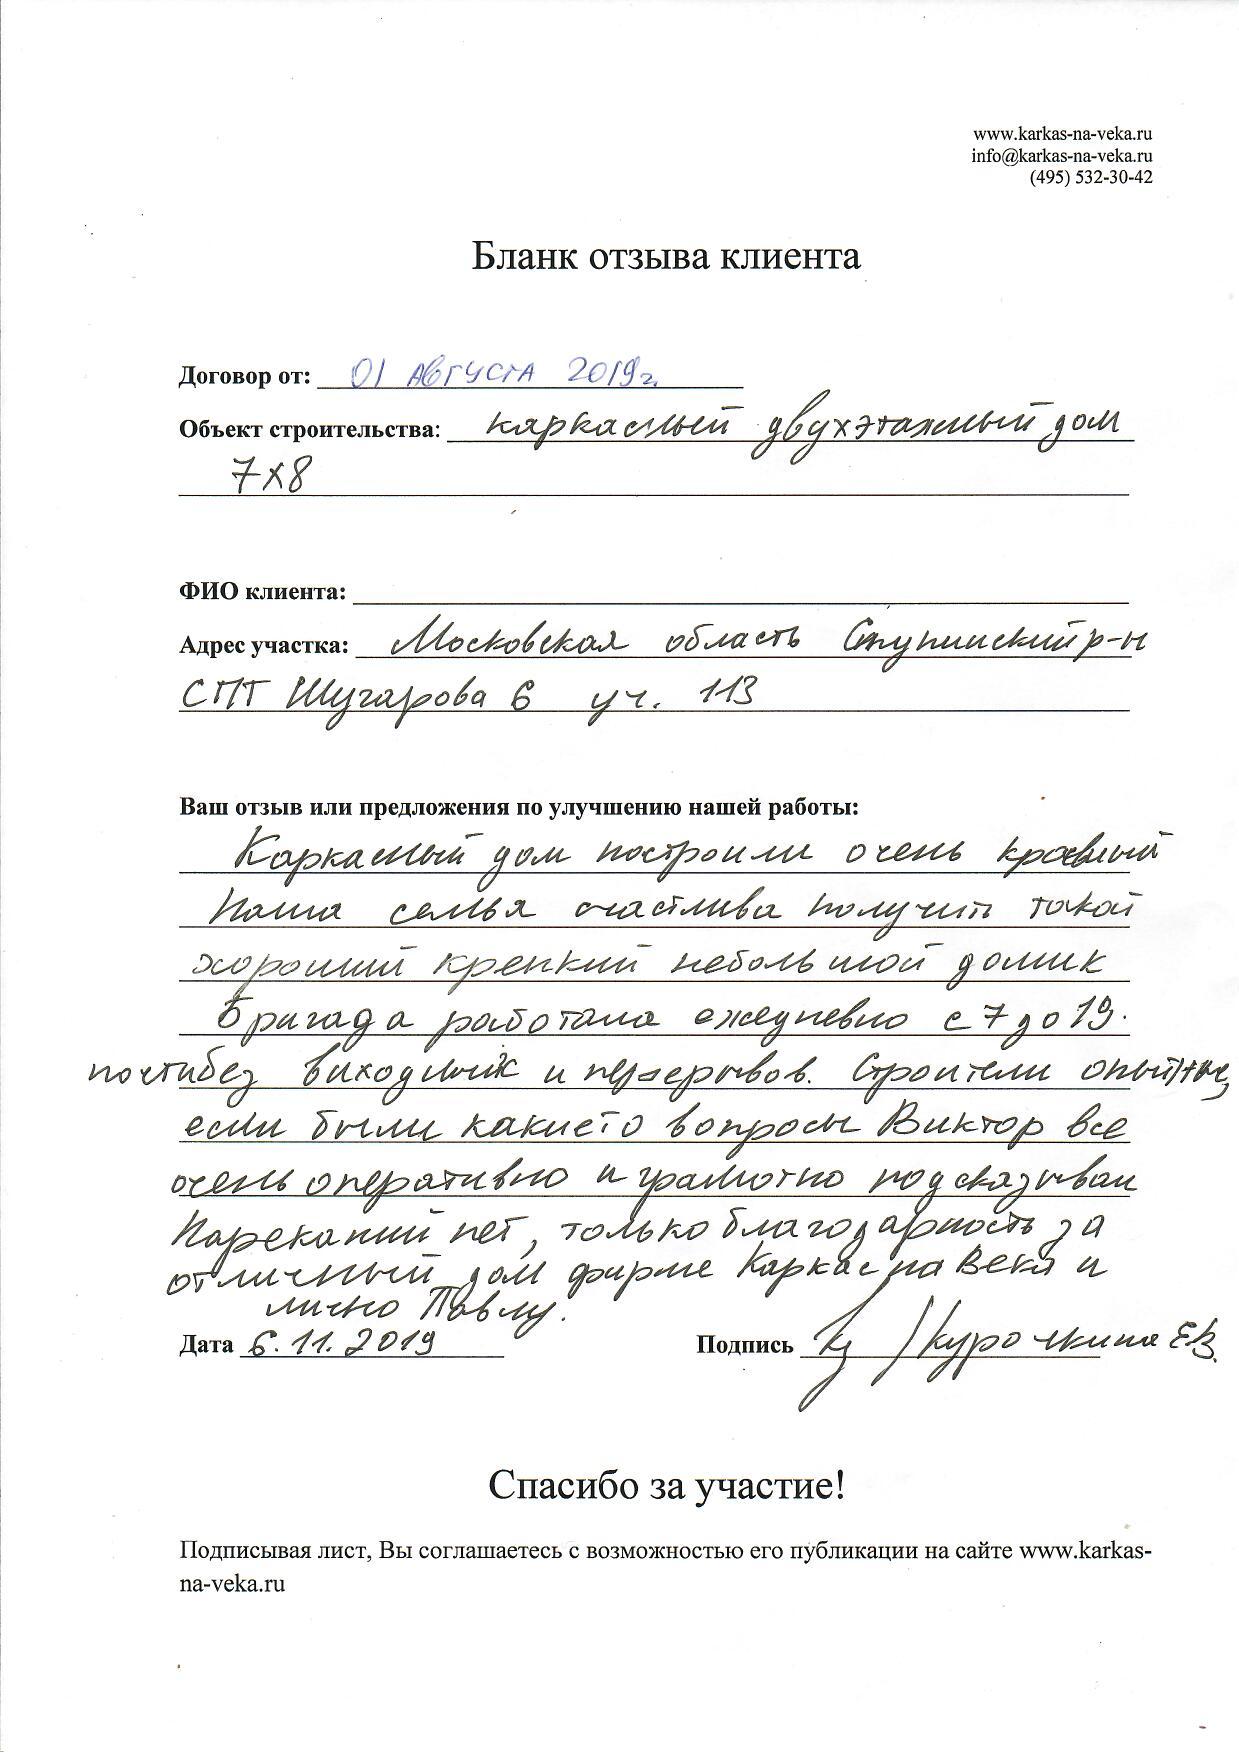 www.karkas-na-veka.ru
info@karkas-na-veka.ru
(495) 532-30-42
Бланк отзыва клиента
Договор от: 01 августа 2019г.
Объект строительства: каркасный двухэтажный дом
7х8
ФИО клиента:
Адрес участка: Московская область Ступинский р-н
СПТ Шугарова 6 уч. 113
Ваш отзыв или предложения по улучшению нашей работы:
Каркасный дом построили очень красивый
Наша семья счастлива получить такой
хороший крепкий небольшой домик
Бригада работала ежедневно с 7 до 19.
почти без выходных и перерывов. Строители опытные,
если были какието вопросы Виктор все
очень оперативно и грамотно подсказывал
Нареканий нет, только благодарность за
отличный дом фирме Каркас на Века и
лично Павлу.
Дата 6.11.2019 Подпись /Курочкина Е.В.
Спасибо за участие!
Подписывая лист, Вы соглашаетесь с возможностью его публикации на сайте www.karkas-
na-veka.ru